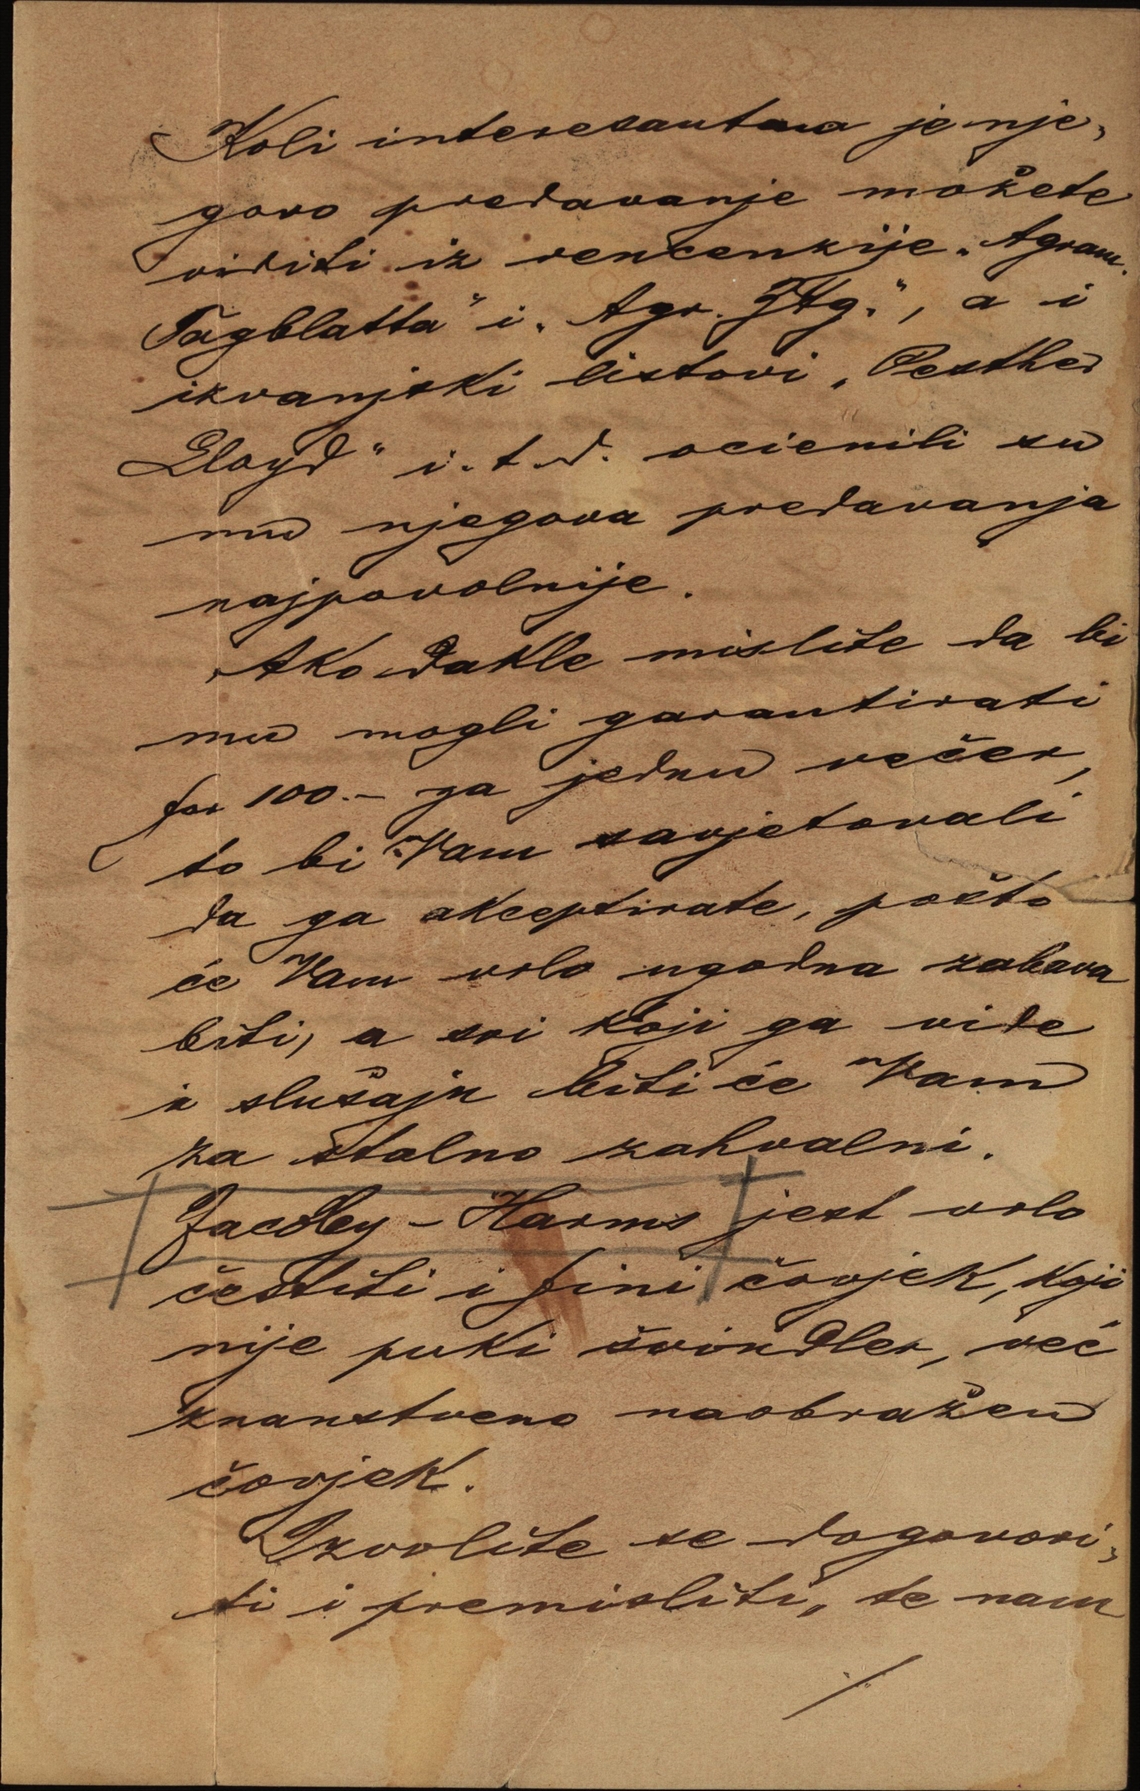 Koli interesantna je nje„
govo predavanje možete
viditi iz rencenzije „Agram.
Tagblatta" i „Agr. Ztg.", a i
izvanjski listovi „Pesther
Lloyd" i. t. d. ocienili su
mu njegova predavanja
najpovolnije.
Ako dakle mislite da bi
mu mogli garantirati
for 100.- za jednu večer,
to bi Vam savjetovali
da ga akceptirate, pošto
će Vam vrlo ugodna zabava
biti, a svi koji ga vide
i slušaju biti će Vam
za stalno zahvalni.
Jacoby - Harms jest vrlo
čestiti i fini čovjek, koji
nije puki švindler, već
znanstveno naobražen
čovjek.
Izvolite se dogovori„
ti i premisliti, te nam
/